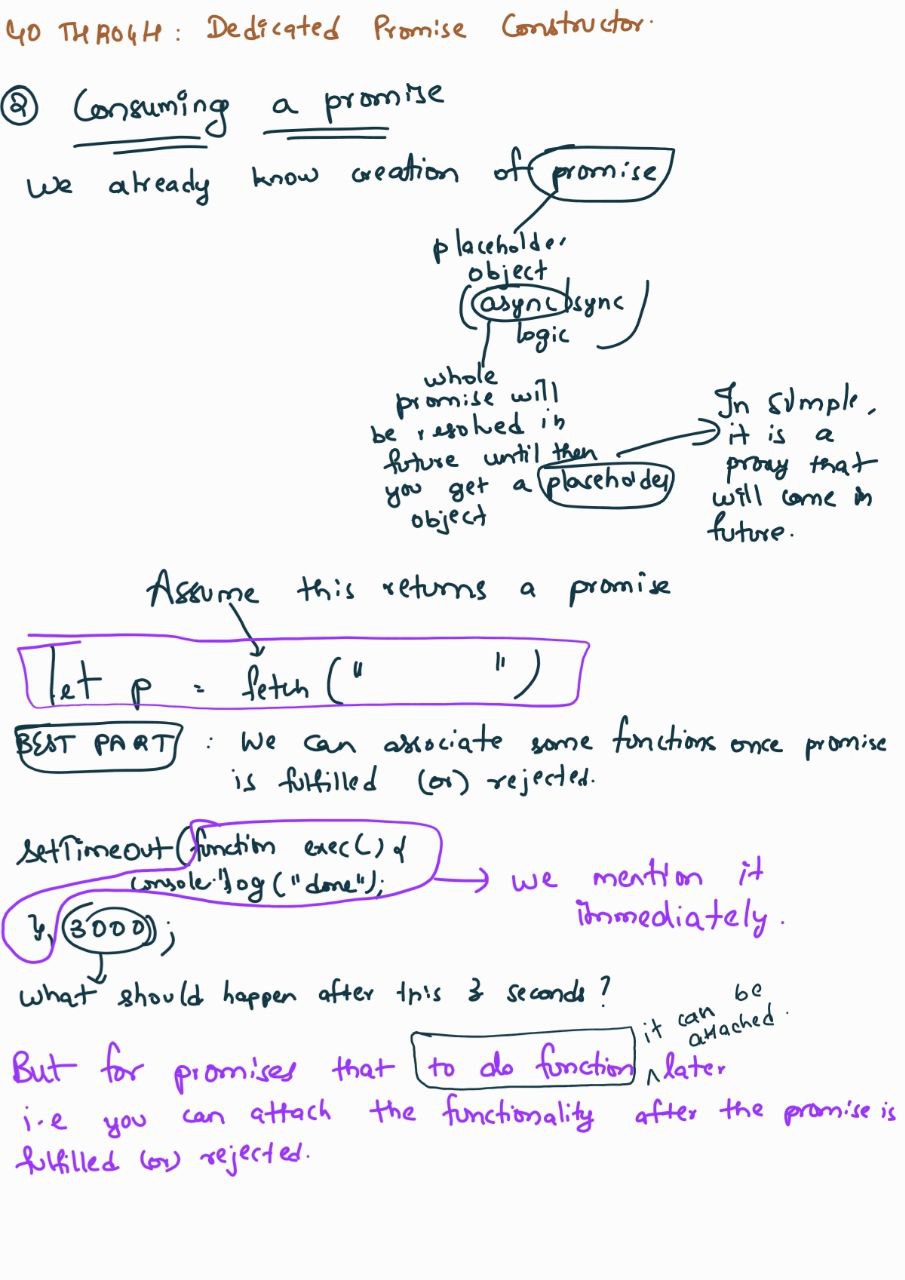 GO THROGH: Dedicated Promise Constructor.
② Consuming a promise
We already know creation of promise
placeholder
object
(async|sync
logic)
whole
promise will
be resolved in
future until then
you get a placeholder
object
In simple,
it is a
proxy that
will come in
future.
Assume this returns a promise
let p = fetch (" ")
BEST PART : We can associate some functions once promise
is fulfilled (or) rejected.
setTimeout(function exec() {
console.log("done");
}, 3000);
we mention it
immediately.
What should happen after this 3 seconds?
it can be
attached.
But for promises that to do function ^ later
i.e you can attach the functionality after the promise is
fulfilled (or) rejected.